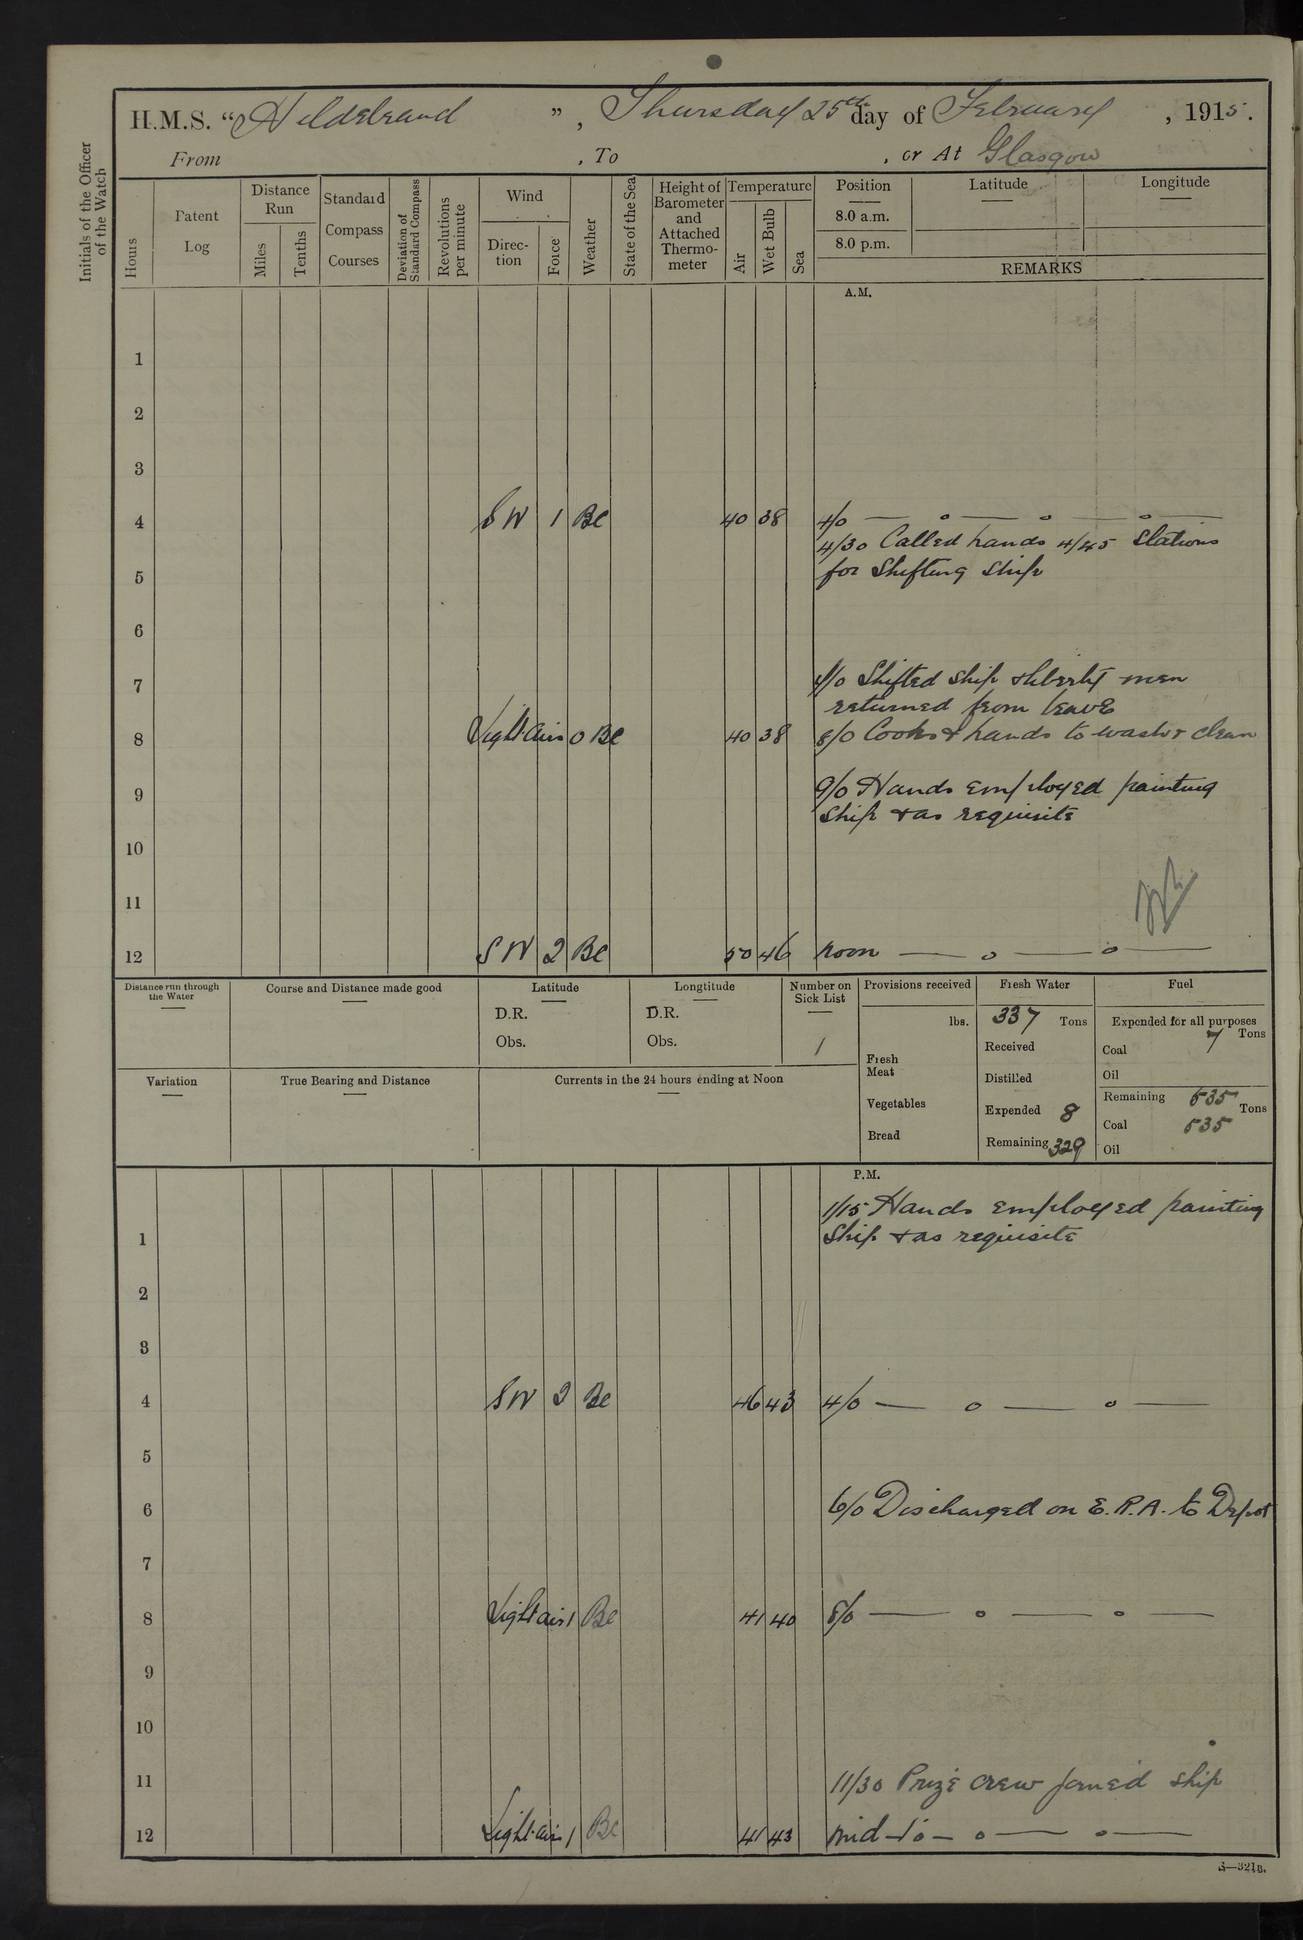 H.M.S. "Hildebrand", Thursday 25th day of February, 1915.
From , To , or At Glasgow
Initials of the Officer of the Watch
Hours
Patent Log
Distance Run
Miles
Tenths
Standard Compass Courses
Deviation of Standard Compass
Revolutions per minute
Wind
Direction
Force
Weather
State of the Sea
Height of Barometer and Attached Thermometer
Temperature
Air
Wet Bulb
Sea
Position
8.0 a.m.
8.0 p.m.
Latitude
Longitude
REMARKS
A.M.
1
2
3
4 SW 1 Bc 40 38 4/0 — o — o — o —
4/30 Called hands 4/45 Stations
5 for Shifting Ship
6
7 Shifted Ship & liberty men
returned from leave
8 Light airs 0 Bc 40 38 8/0 Cooks & hands to wash & clean
9 9/0 Hands employed painting
Ship & as requisite
10
11
12 SW 2 Bc 50 46 noon — o — o —
Distance run through the Water
Course and Distance made good
Latitude
D.R.
Obs.
Longtitude
D.R.
Obs.
Number on Sick List
1
Provisions received
lbs.
Fresh Meat
Vegetables
Bread
Fresh Water
337 Tons
Received
Distilled
Expended 8
Remaining 329
Fuel
Expended for all purposes
Tons
Coal 7
Oil
Remaining 535
Tons
Coal 535
Oil
Variation
True Bearing and Distance
Currents in the 24 hours ending at Noon
P.M.
1/15 Hands employed painting
1 Ship & as requisite
2
3
4 SW 2 Bc 46 43 4/0 — o — o —
5
6 6/0 Discharged on E.R.A. to Depot
7
8 Light airs 1 Bc 41 40 8/0 — o — o —
9
10
11 11/30 Prize crew joined ship
12 Light airs 1 Bc 41 43 mid — o — o — o —
S—321B.